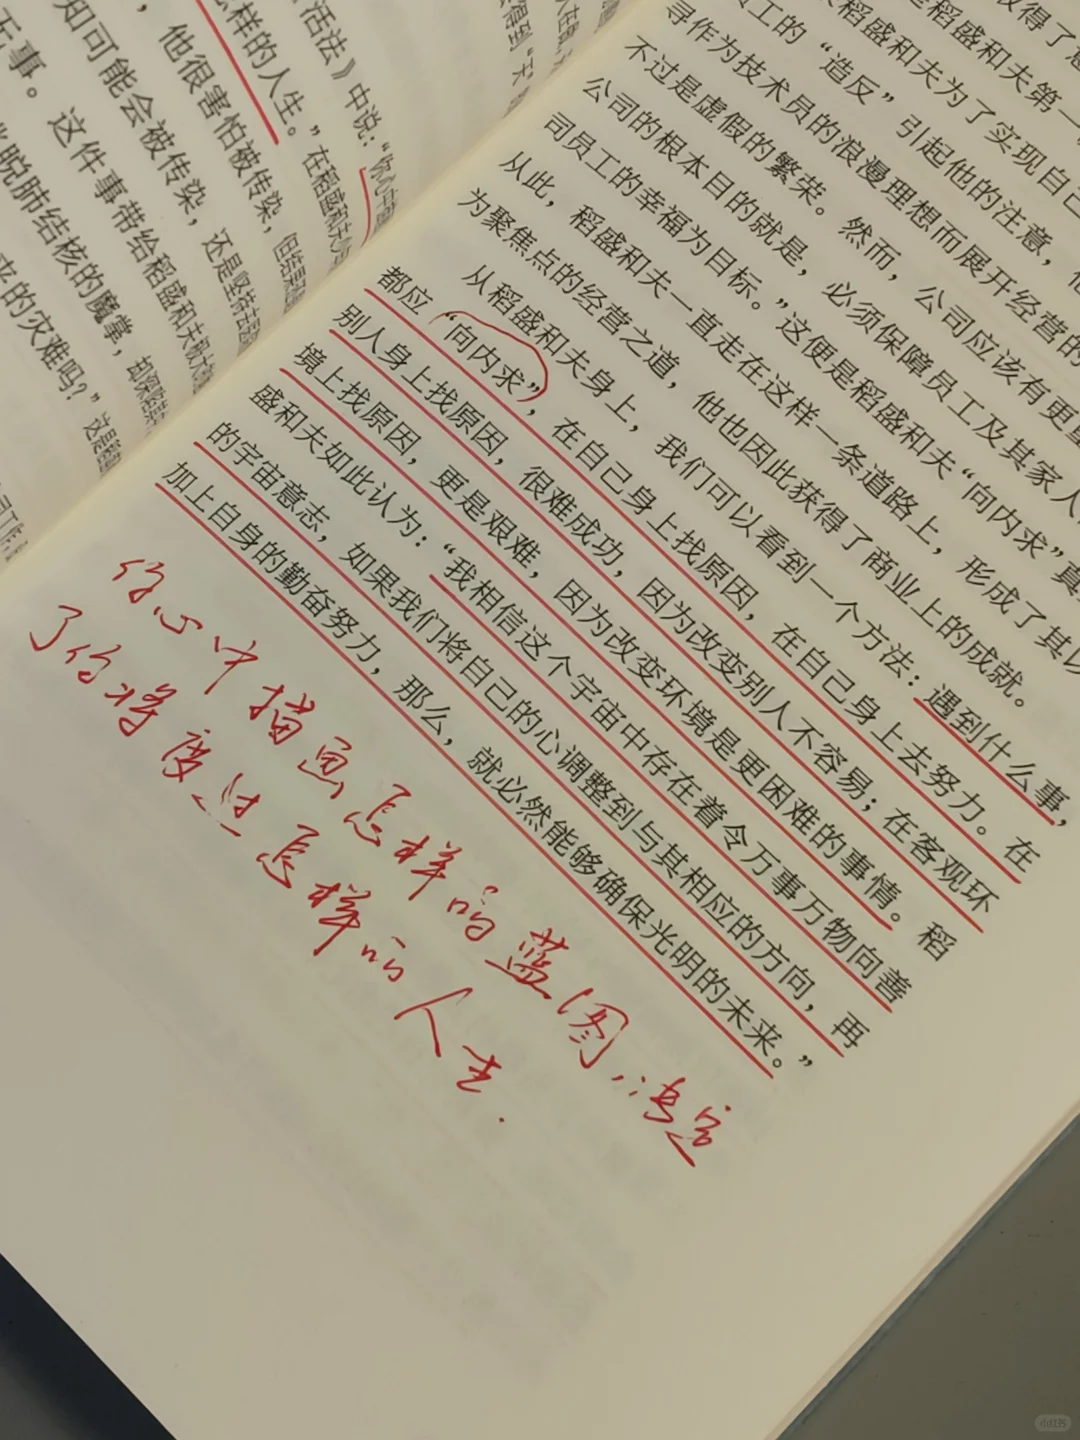 活法》中说：“你心中描
怎样的人生。”在稻盛和夫
，他很害怕被传染，但结果
知可能会被传染，还是坚持去
无事。这件事带给稻盛和夫极大
脱肺结核的魔掌，却深陷
来的灾难吗？”这是
稻盛和夫第一
稻盛和夫为了实现自己
员工的“造反”引起他的注意，他
寻作为技术员的浪漫理想而展开经营的
不过是虚假的繁荣。然而，公司应该有更重
公司的根本目的就是，必须保障员工及其家人
司员工的幸福为目标。”这便是稻盛和夫“向内求”真
从此，稻盛和夫一直走在这样一条道路上，形成了其以
为聚焦点的经营之道，他也因此获得了商业上的成就。
从稻盛和夫身上，我们可以看到一个方法：遇到什么事，
都应“向内求”，在自己身上找原因，在自己身上去努力。在
别人身上找原因，很难成功，因为改变别人不容易；在客观环
境上找原因，更是艰难，因为改变环境是更困难的事情。稻
盛和夫如此认为：“我相信这个宇宙中存在着令万事万物向善
的宇宙意志，如果我们将自己的心调整到与其相应的方向，再
加上自身的勤奋努力，那么，就必然能够确保光明的未来。”
你心中描画怎样的蓝图，决定
了你将度过怎样的人生.
小红书